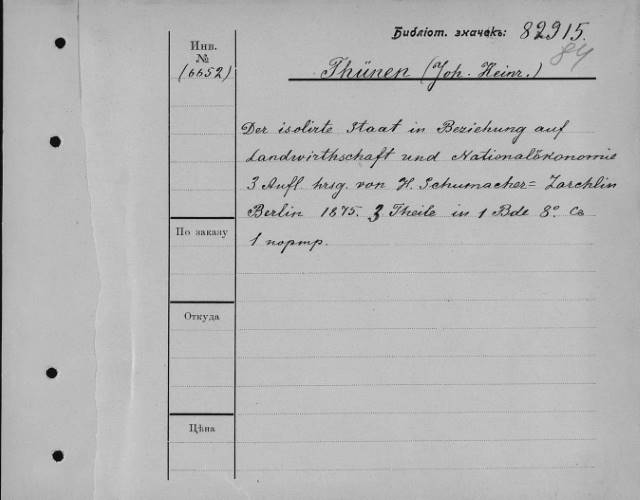 Библіот. значекъ: 82915.
84
Инв.
№
(6652)
Thünen (Joh. Heinr.)
Der isolirte Staat in Beziehung auf
Landwirthschaft und Nationalökonomie
3 Aufl. hrsg. von H. Schumacher= Zarchlin
Berlin 1875. 3 Theile in 1 Bde 8º. Съ
1 портр.
По заказу
Откуда
Цѣна